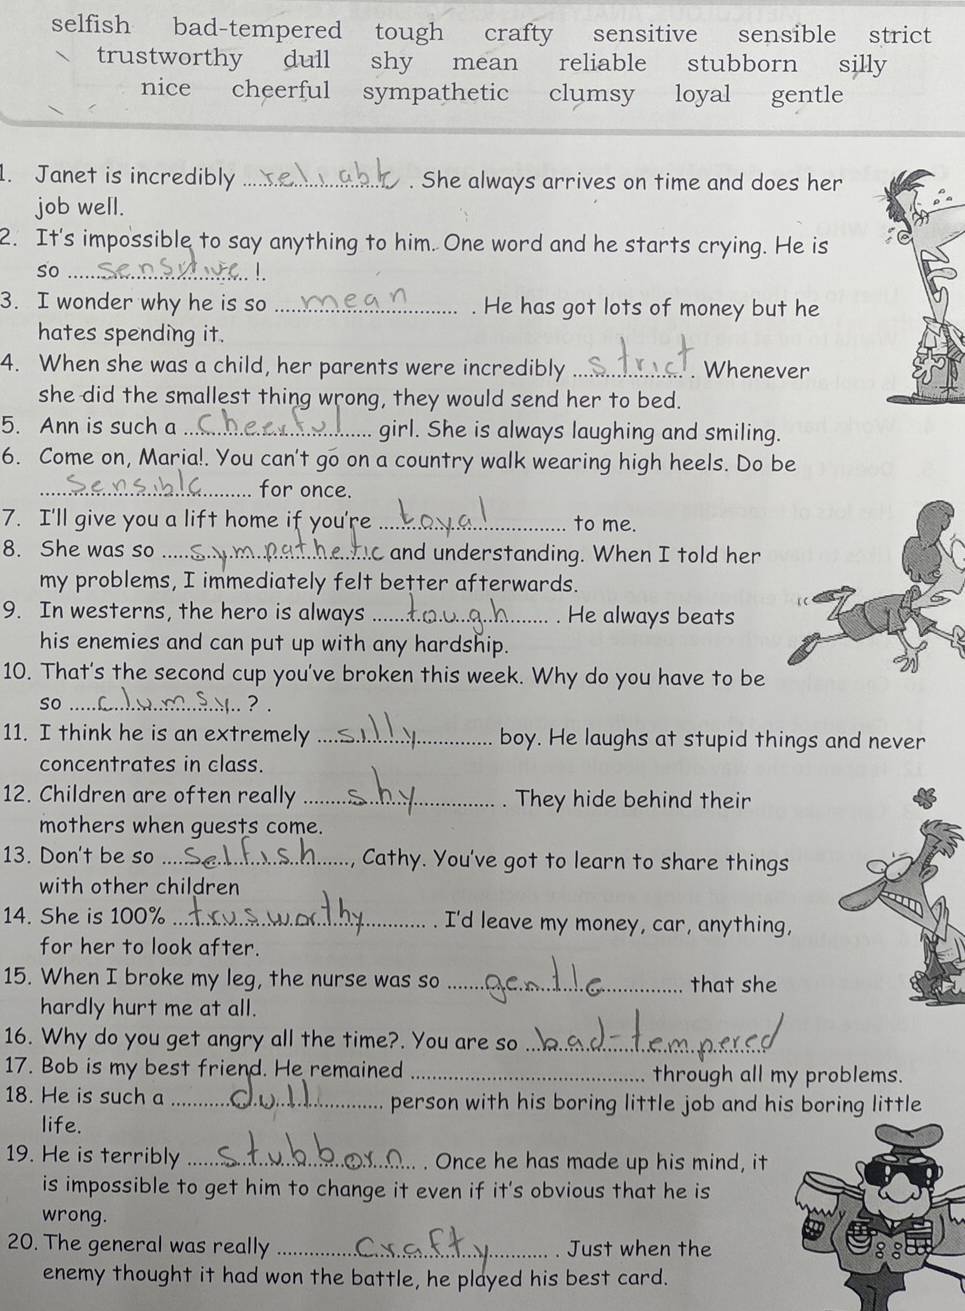 selfish bad-tempered tough crafty sensitive sensible strict
trustworthy dull shy mean reliable stubborn silly
nice cheerful sympathetic clumsy loyal gentle
1. Janet is incredibly reliable . She always arrives on time and does her
job well.
2. It's impossible to say anything to him. One word and he starts crying. He is
so sensitive !.
3. I wonder why he is so mean . He has got lots of money but he
hates spending it.
4. When she was a child, her parents were incredibly strict . Whenever
she did the smallest thing wrong, they would send her to bed.
5. Ann is such a Cheerful girl. She is always laughing and smiling.
6. Come on, Maria!. You can't go on a country walk wearing high heels. Do be
Sensible for once.
7. I'll give you a lift home if you're loyal to me.
8. She was so sympathetic and understanding. When I told her
my problems, I immediately felt better afterwards.
9. In westerns, the hero is always tough . He always beats
his enemies and can put up with any hardship.
10. That's the second cup you've broken this week. Why do you have to be
so clumsy ? .
11. I think he is an extremely silly boy. He laughs at stupid things and never
concentrates in class.
12. Children are often really shy . They hide behind their
mothers when guests come.
13. Don't be so Selfish , Cathy. You've got to learn to share things
with other children
14. She is 100% trusworthy . I'd leave my money, car, anything,
for her to look after.
15. When I broke my leg, the nurse was so gentle that she
hardly hurt me at all.
16. Why do you get angry all the time?. You are so bad-tempered
17. Bob is my best friend. He remained through all my problems.
18. He is such a dull person with his boring little job and his boring little
life.
19. He is terribly stubborn . Once he has made up his mind, it
is impossible to get him to change it even if it's obvious that he is
wrong.
20. The general was really Crafty . Just when the
enemy thought it had won the battle, he played his best card.